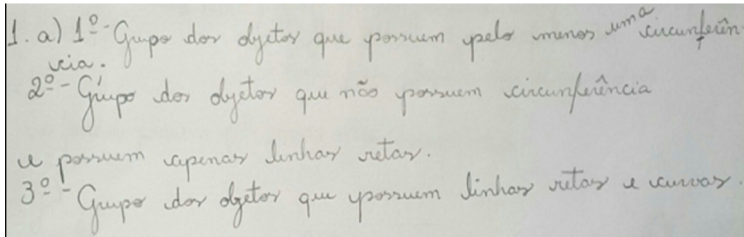 1. a) 1º - Grupo dos objetos que possuem pelo menos uma circunferên-
cia.
2º - Grupo dos objetos que não possuem circunferência
e possuem apenas linhas retas.
3º - Grupo dos objetos que possuem linhas retas e curvas.